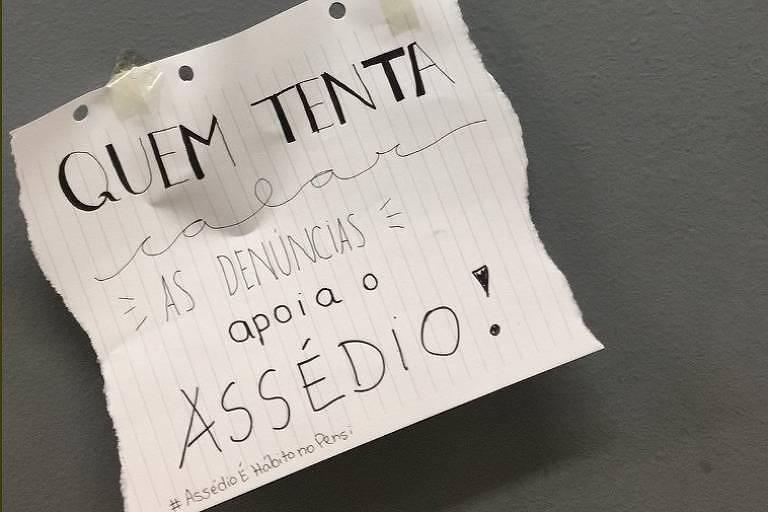 QUEM TENTA
calar
AS DENÚNCIAS
apoia o
ASSÉDIO!
#AssédioÉHábitonoPensi